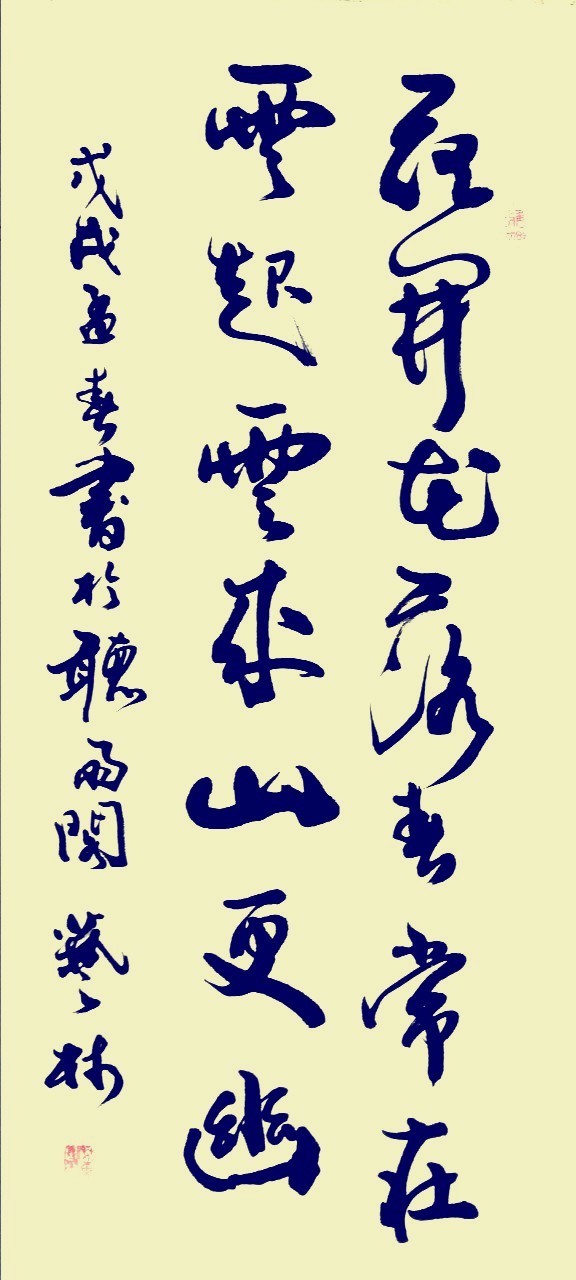 花開花落春常在
雲起雲來山更幽
戊戌孟春書於聽雨閣 藝林